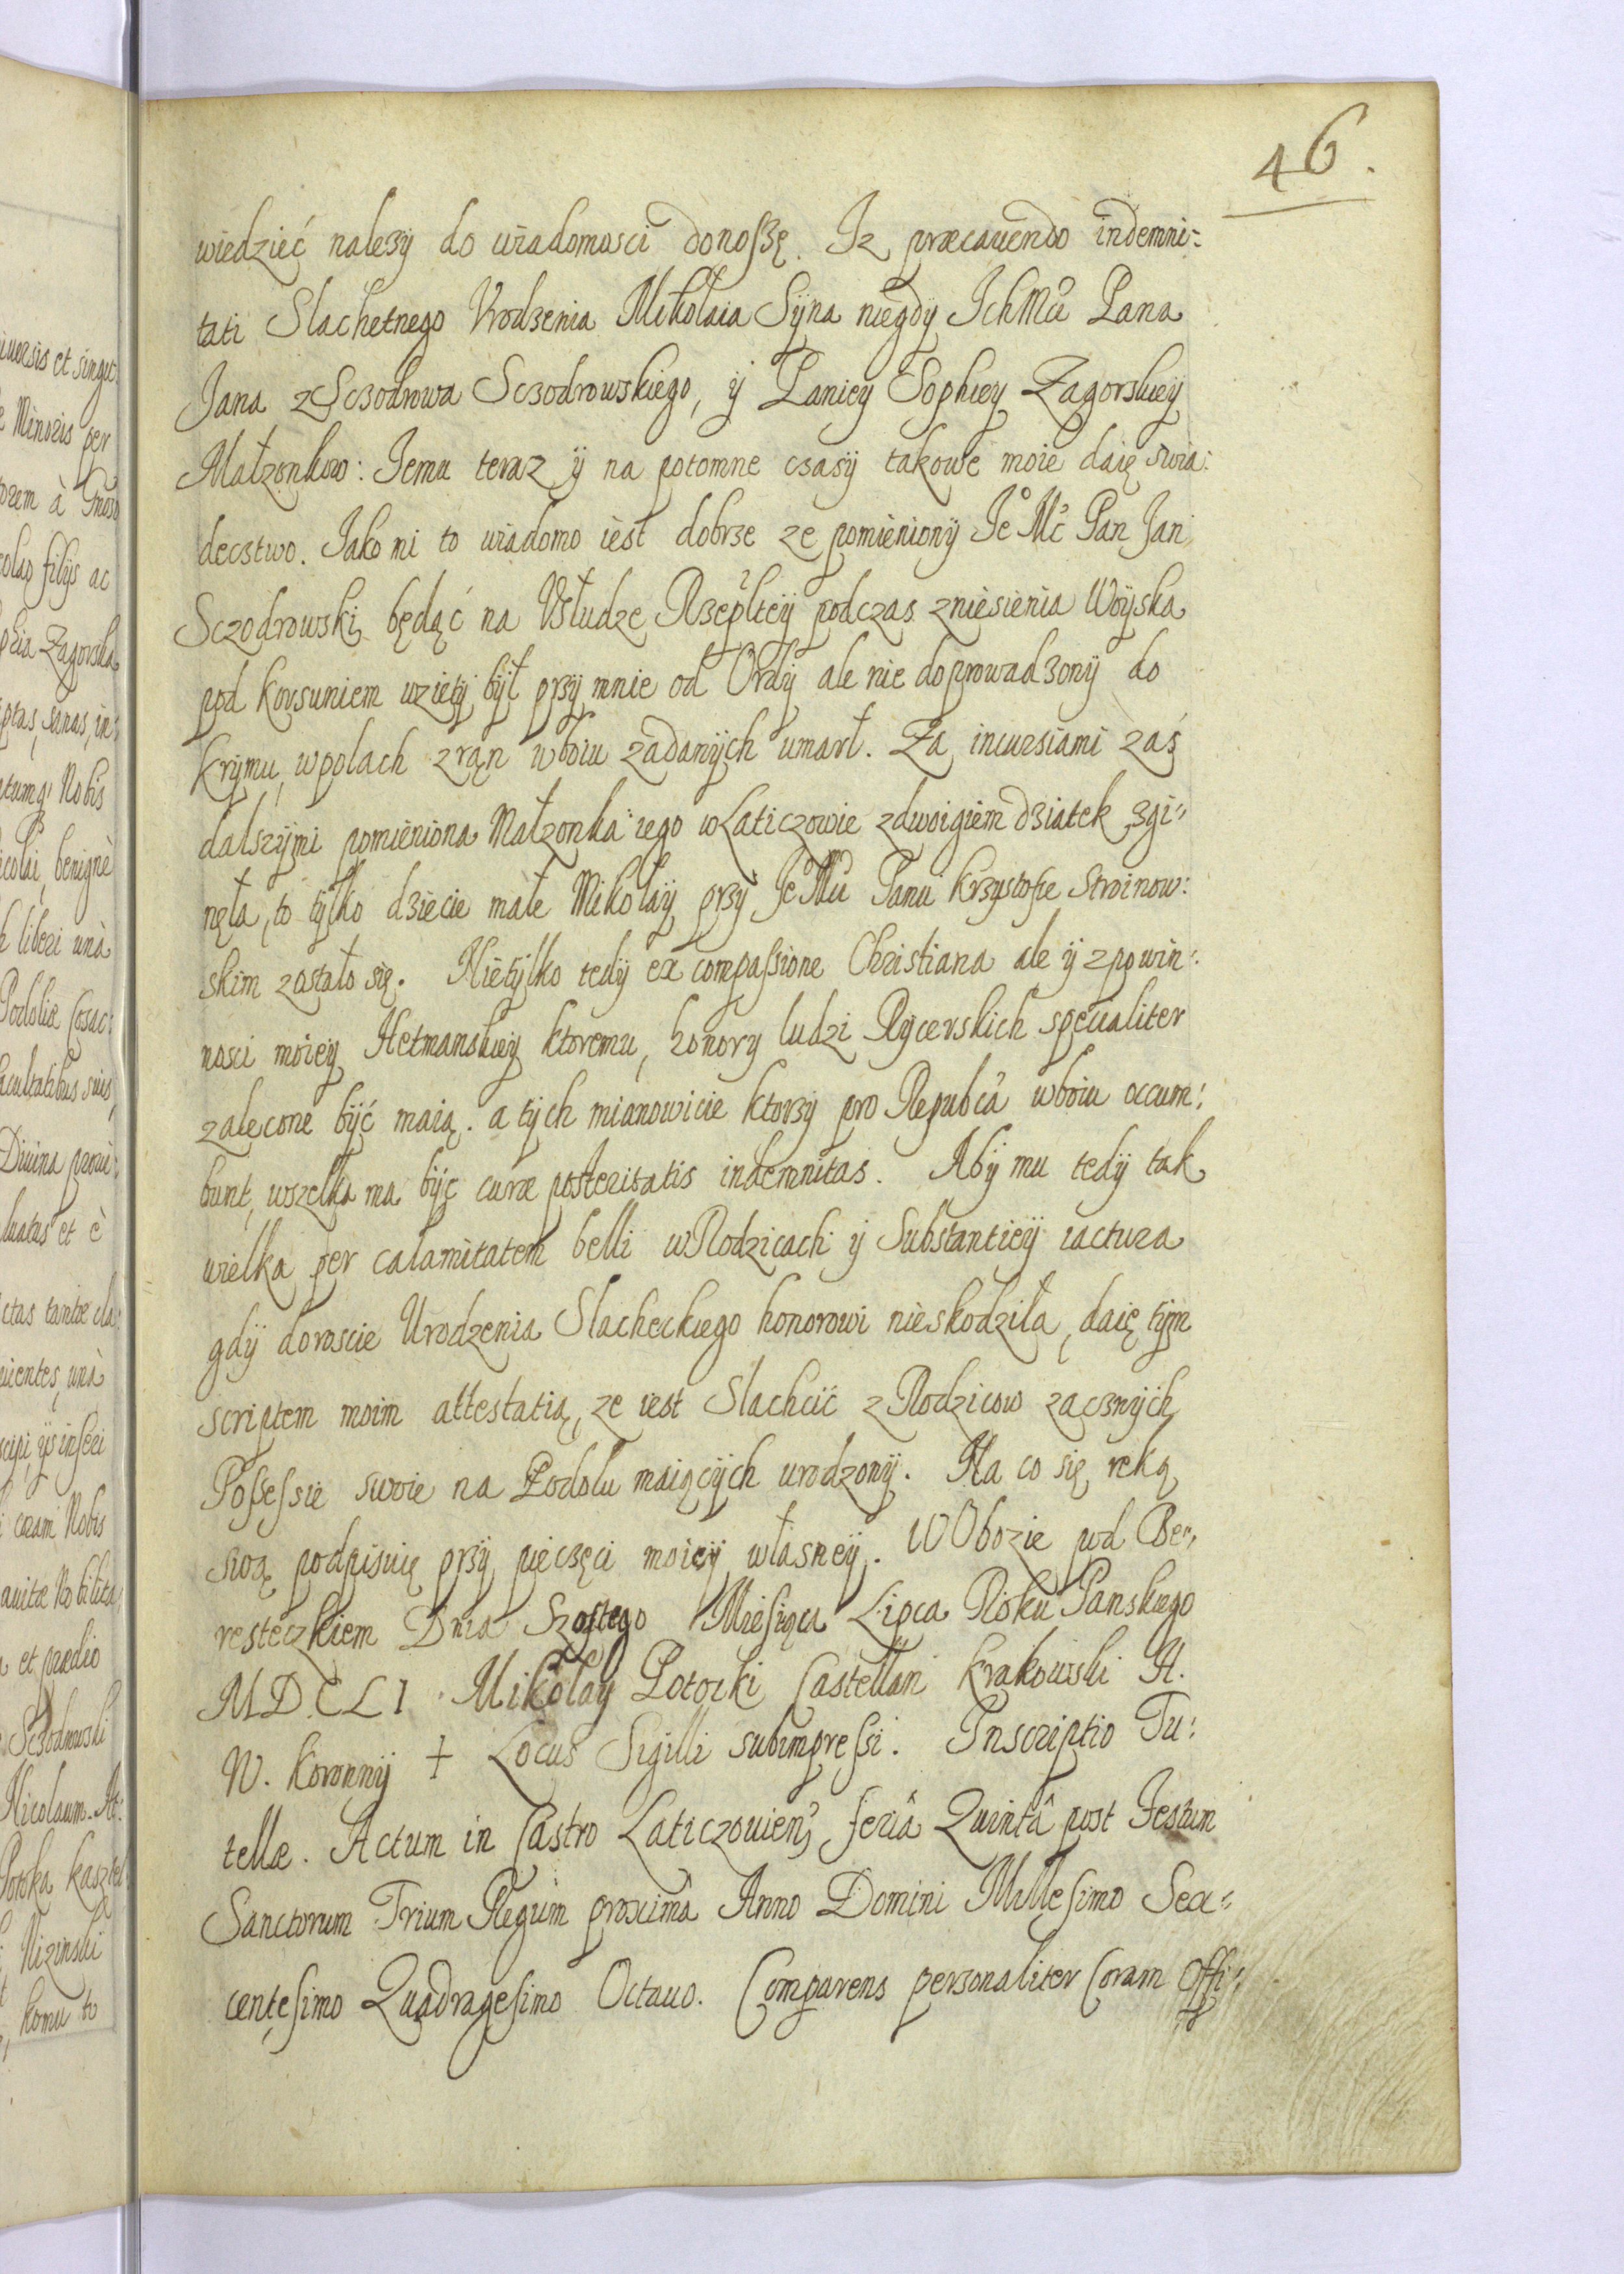 46.
wiedzieć należy do wiadomosci donoszę. Iz præcavendo indemni-
tati Slachetnego Vrodzenia Mikołaia Syna niegdy IchMći Pana
Jana z Sczodrowa Sczodrowskiego, ÿ Paniey Sophiey Zagorskieÿ
Małzonkow: Iemu teraz ÿ na potomne czasÿ takowe moie daię swia:
decstwo. Iako mi to wiadomo iest dobrze ze pomienionÿ Ie Mć Pan Jan
Sczodrowski będąć na Vsłudze Rzeplteÿ podczas zniesienia Woÿska
pod korsuniem wzietÿ bÿł przÿ mnie od Ordÿ ale nie doprowadzonÿ do
krÿmu, w polach z ran w boiu zadanÿch umarł. Za incursiami zaś
dalszÿmi pomieniona Małzonka iego w Laticzowie z dwoigiem dziatek zgi-
nęła, to tÿlko dziecie małe Mikołaÿ przÿ Ie Mći Panu Krzystofie Stroinow:
skim zostało się. Nietÿlko tedÿ ex compassione Christiana ale ÿ z powin:
nosci moieÿ Hetmanskieÿ ktoremu, honory ludzi Rÿcerskich specialiter
zalęcone bÿć maią. a tÿch mianowicie ktorzÿ pro Republcā w boiu occum:
bunt, wszelka ma bÿć curæ posteritatis indemnitas. Abÿ mu tedÿ tak
wielka per calamitatem belli w Rodzicach ÿ Substantieÿ iactura
gdÿ doroscie Urodzenia Slacheckiego honorowi nieskodziła, daię tÿm
scriptem moim attestatią, ze iest Slachcić z Rodzicow zacznÿch
Possessie swoie na Podolu maiącÿch urodzonÿ. Na co się ręką
swą podpisuię przÿ pieczęci moieÿ własneÿ. W Obozie pod Be-
resteczkiem Dnia Szostego Miesiąca Lipca Roku Panskiego
MDCLI Mikołaÿ Potocki Castellan Krakowski H.
W. Koronnÿ + Locus Sigilli subimpressi. Inscriptio Tu:
tellæ. Actum in Castro Laticzouien, feriâ Quintâ post Festum
Sanctorum Trium Regum proximâ Anno Domini Millesimo Sex-
centesimo Quadragesimo Octavo. Comparens personaliter Coram Offi: